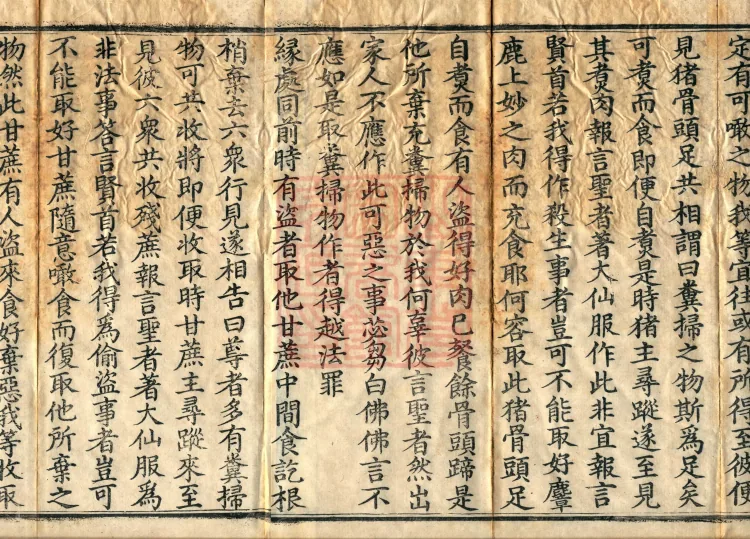 定有可噉之物我等宜往或有所得至彼便
見猪骨頭足共相謂曰糞掃之物斯爲足矣
可煑而食即便自煑是時猪主尋蹤遂至見
其煑肉報言聖者著大仙服作此非宜報言
賢首若我得作殺生事者豈可不能取好麞
鹿上妙之肉而充食耶何容取此猪骨頭足
自煑而食有人盜得好肉已飡餘骨頭蹄是
他所棄充糞掃物於我何辜彼言聖者然出
家人不應作此可惡之事苾芻白佛佛言不
應如是取糞掃物作者得越法罪
緣處同前時有盜者取他甘蔗中間食訖根
梢棄去六衆行見遂相告曰尊者多有糞掃
物可共收將即便收取時甘蔗主尋蹤來至
見彼六衆共收殘蔗報言聖者著大仙服爲
非法事答言賢首若我得爲偷盜事者豈可
不能取好甘蔗隨意噉食而復取他所棄之
物然此甘蔗有人盜來食好棄惡我等收取